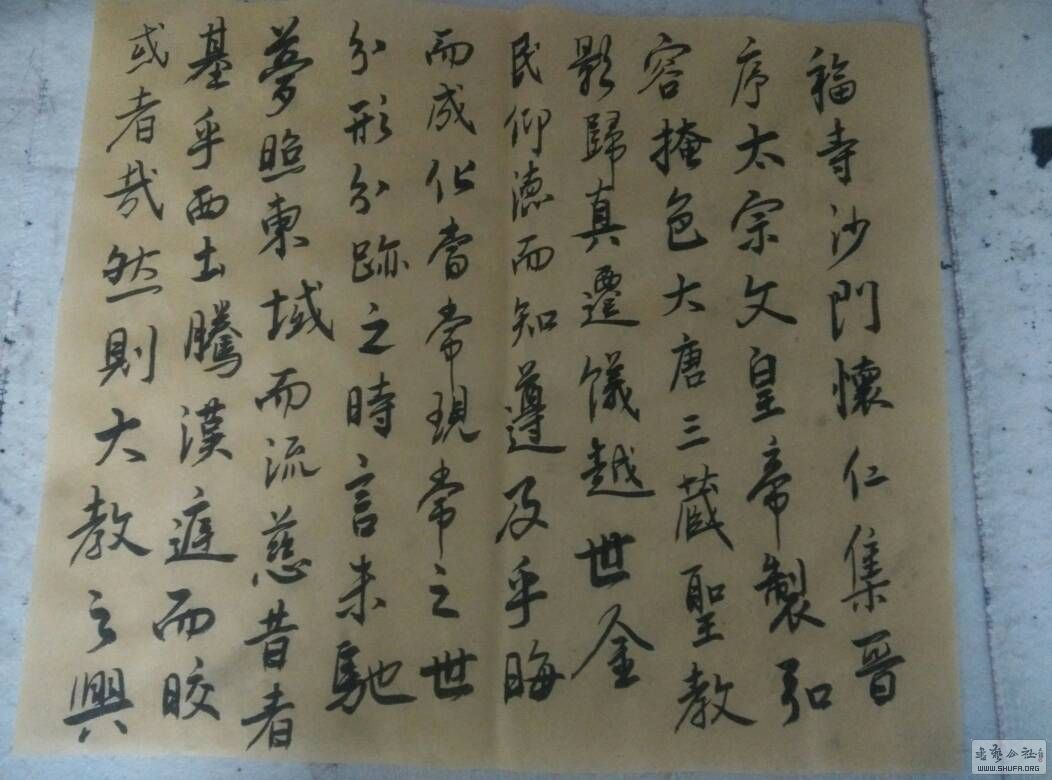 福寺沙門懷仁集晉
序太宗文皇帝製弘
容掩色大唐三藏聖教
影歸真遷儀越世金
民仰德而知遵及乎晦
而成化當常現常之世
分形分跡之時言未馳
夢照東域而流慈昔者
基乎西土騰漢庭而皎
或者哉然則大教之興
書藝公社
WWW.SHUFA.ORG